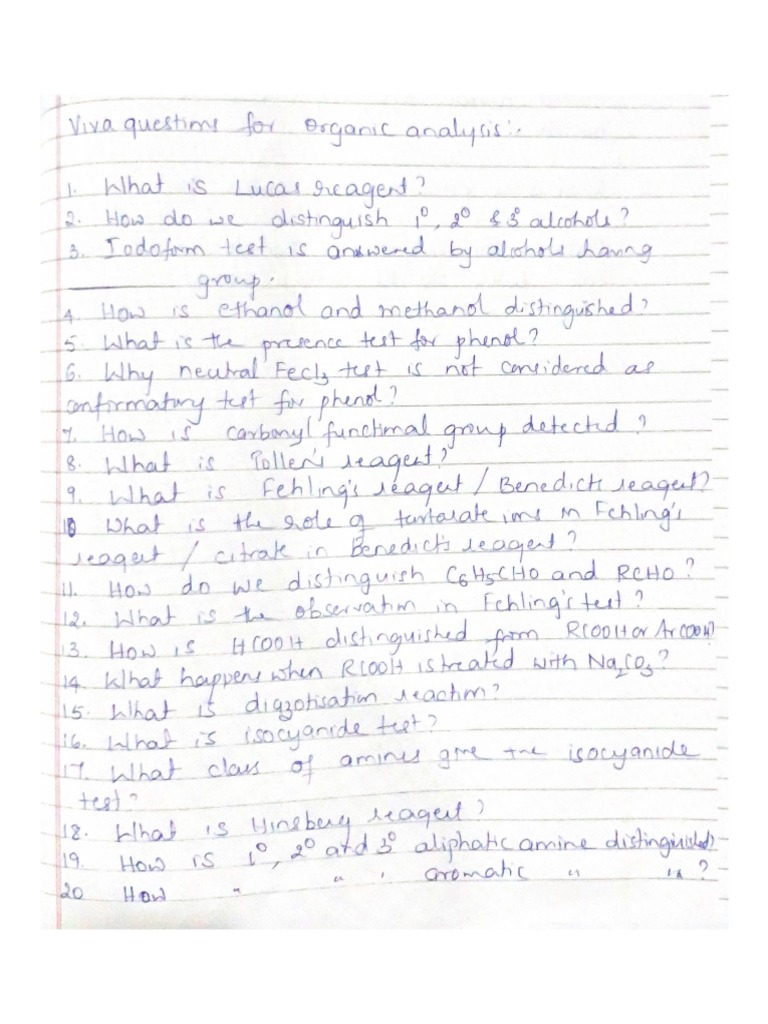 Viva questions for Organic analysis:-
1. What is Lucas reagent?
2. How do we distinguish 1⁰, 2⁰ & 3⁰ alcohols?
3. Iodoform test is answered by alcohols having
__________ group.
4. How is ethanol and methanol distinguished?
5. What is the presence test for phenol?
6. Why neutral FeCl₃ test is not considered as
confirmatory test for phenol?
7. How is carbonyl functional group detected?
8. What is Tollen's reagent?
9. What is Fehling's reagent / Benedicts reagent?
10 What is the role of tartarate ions in Fehling's
reagent / citrate in Benedict's reagent?
11. How do we distinguish C₆H₅CHO and RCHO?
12. What is the observation in Fehling's test?
13. How is HCOOH distinguished from RCOOH or ArCOOH?
14. What happens when RCOOH is treated with Na₂CO₃?
15. What is diazotisation reaction?
16. What is isocyanide test?
17. What class of amines give the isocyanide
test?
18. What is Hinsberg reagent?
19. How is 1⁰, 2⁰ and 3⁰ aliphatic amine distinguished?
20 How " " " aromatic " "?